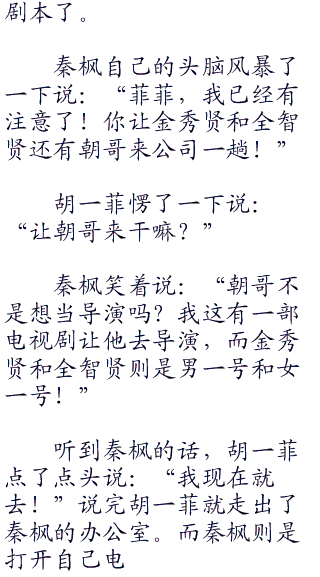 剧本了。
秦枫自己的头脑风暴了
一下说：“菲菲，我已经有
注意了！你让金秀贤和全智
贤还有朝哥来公司一趟！”
胡一菲愣了一下说：
“让朝哥来干嘛？”
秦枫笑着说：“朝哥不
是想当导演吗？我这有一部
电视剧让他去导演，而金秀
贤和全智贤则是男一号和女
一号！”
听到秦枫的话，胡一菲
点了点头说：“我现在就
去！”说完胡一菲就走出了
秦枫的办公室。而秦枫则是
打开自己电